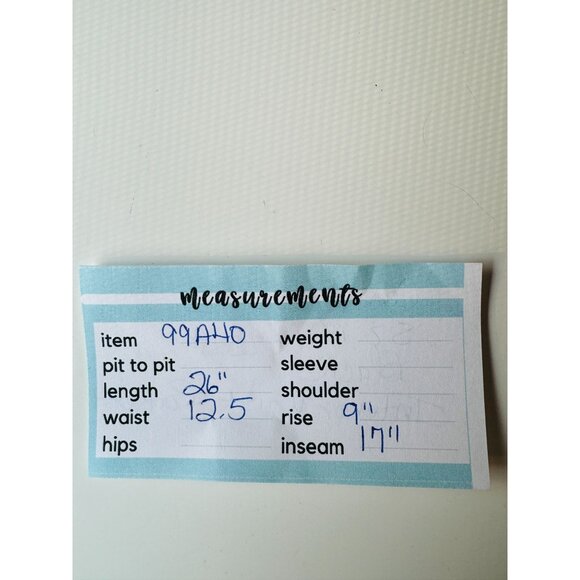 measurements
item 99A40
pit to pit
length 26"
waist 12.5
hips
weight
sleeve
shoulder
rise 9"
inseam 17"